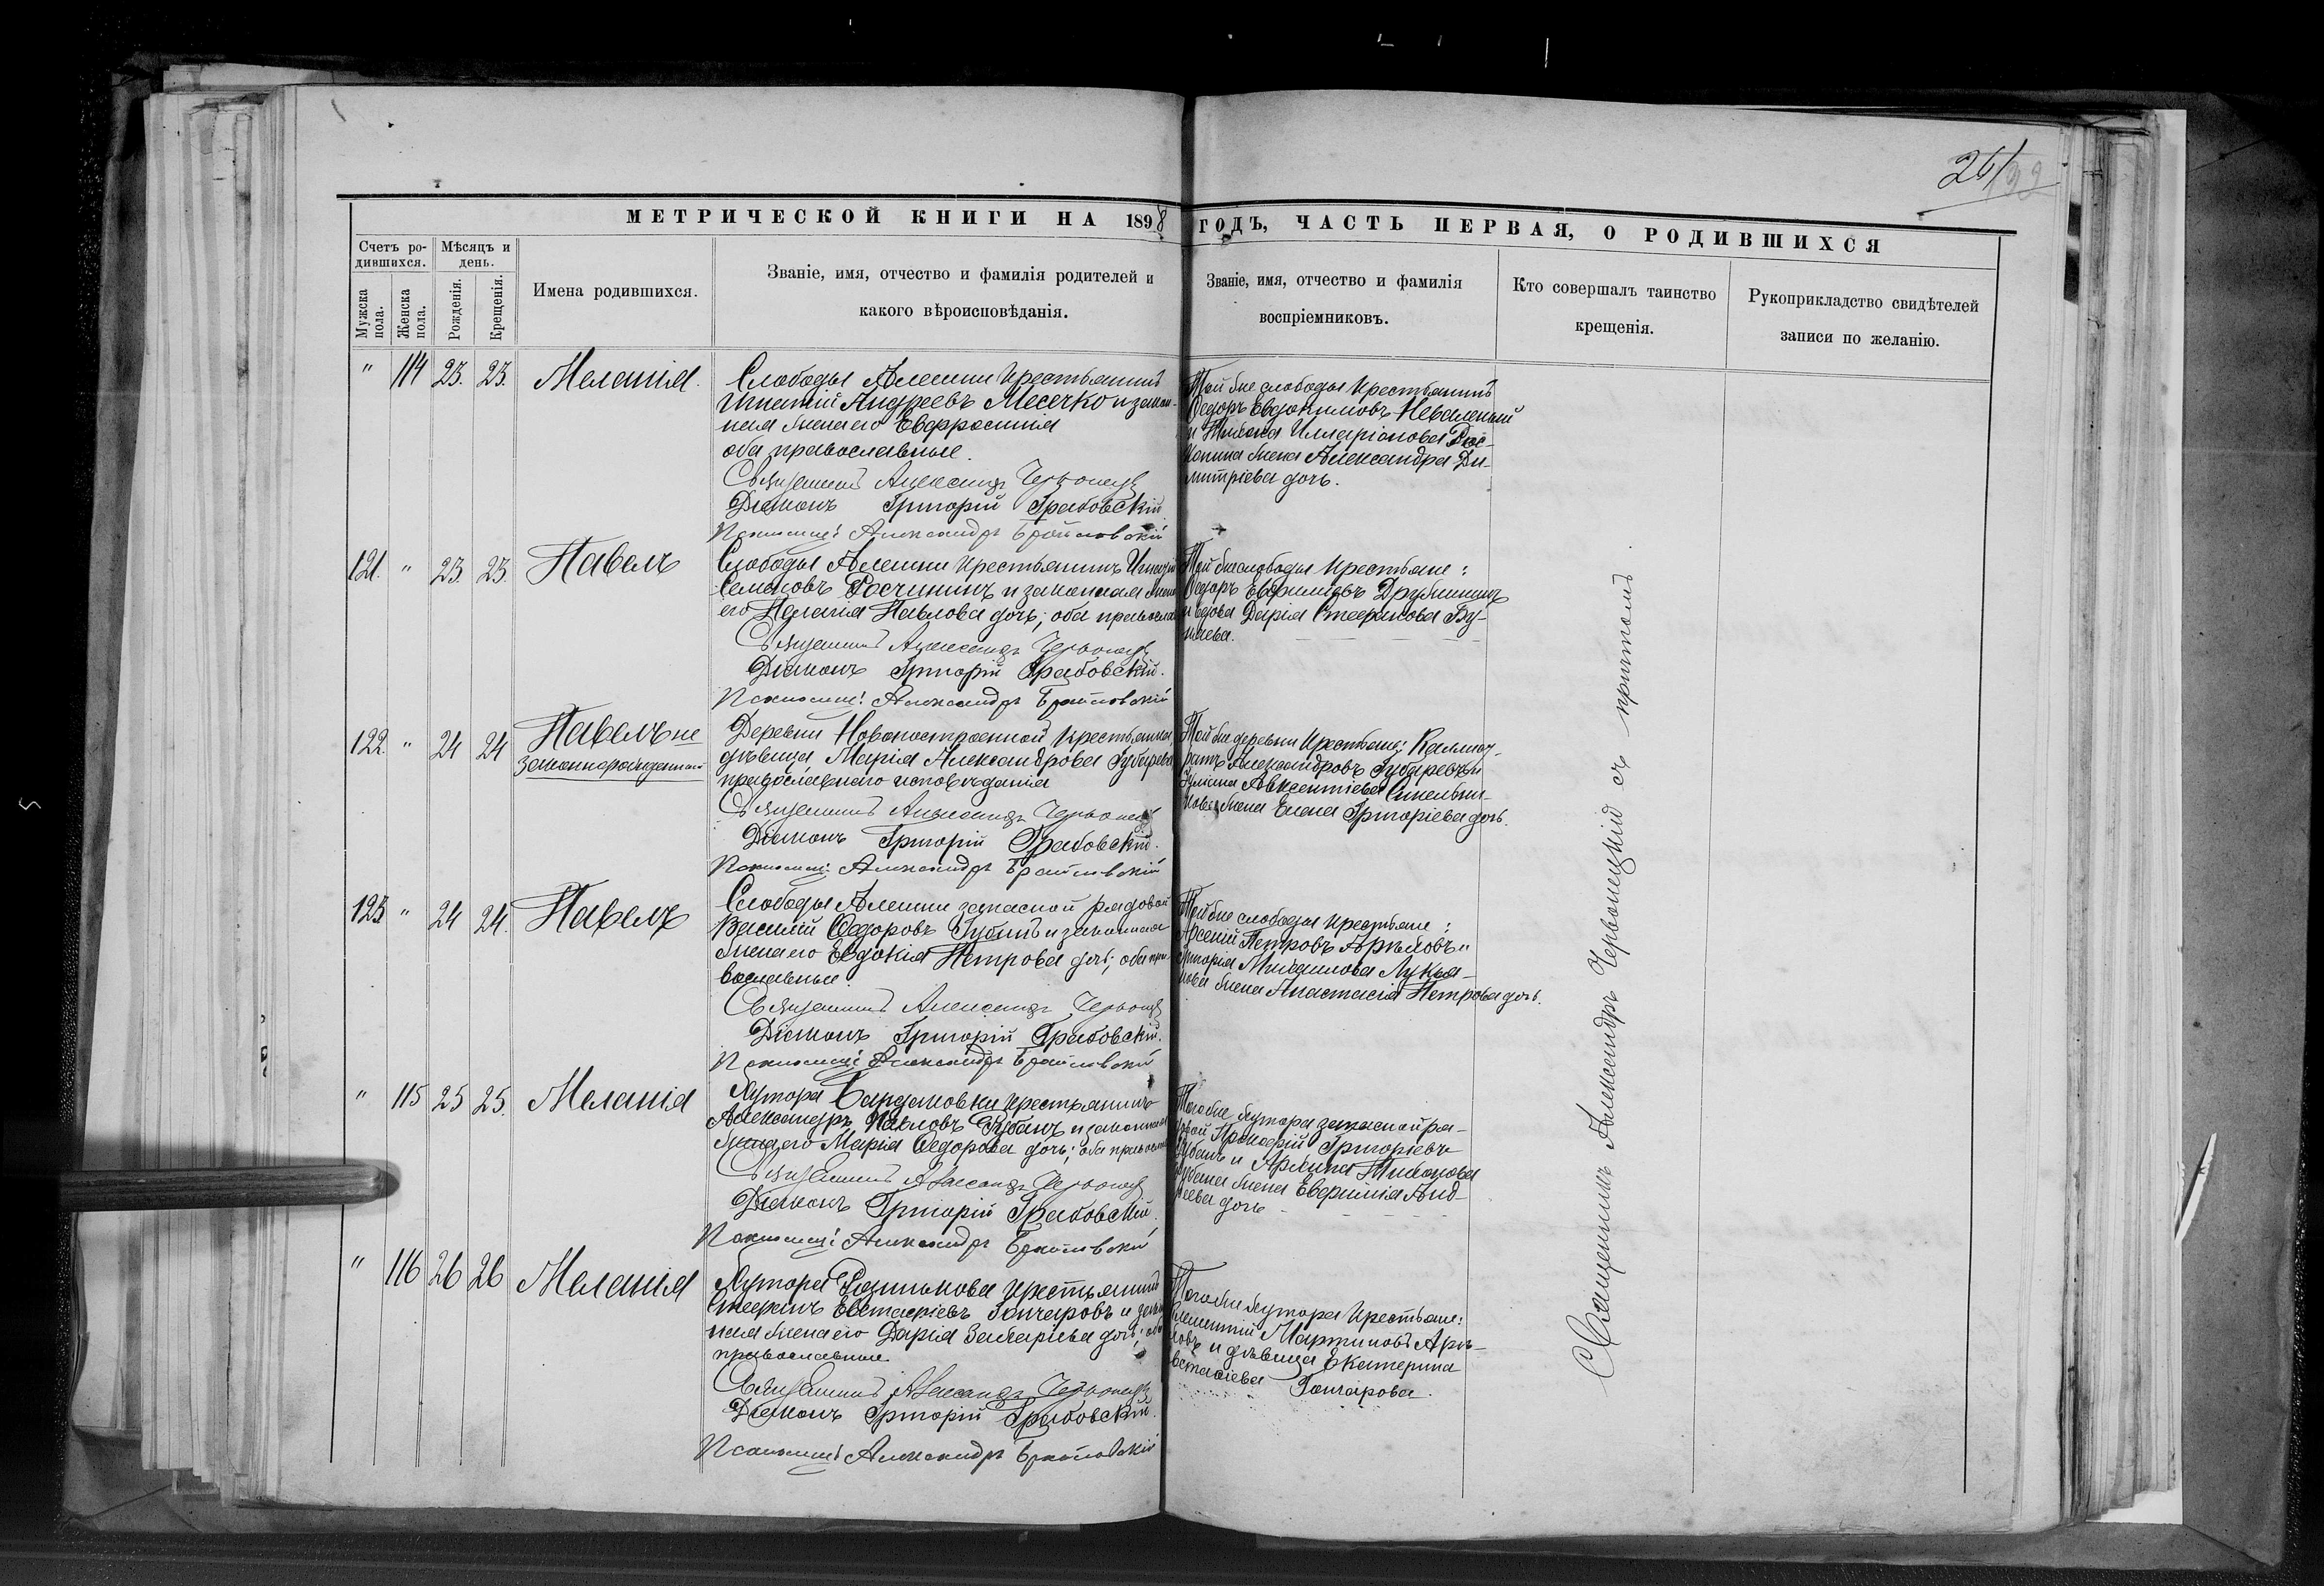 261
МЕТРИЧЕСКОЙ КНИГИ НА 1898 ГОДЪ, ЧАСТЬ ПЕРВАЯ, О РОДИВШИХСЯ
Счетъ ро-
дившихся.
Мужска
пола.
Женска
пола.
Мѣсяцъ и
день.
Рожденія.
Крещенія.
Имена родившихся.
Званіе, имя, отчество и фамилія родителей и
какого вѣроисповѣданія.
Званіе, имя, отчество и фамилія
воспріемниковъ.
Кто совершалъ таинство
крещенія.
Рукоприкладство свидѣтелей
записи по желанію.
" 114 23. 23. Меланія.
Слободы Алешки крестьянинъ
Игнатій Андреевъ Месечко и закон-
ная жена его Евфросинія
оба православные.
Священникъ Александръ Червонецкій
Діаконъ Григорій Грабовскій
Псаломщ: Александръ
Той же слободы крестьянинъ
Ѳедоръ Евдокимовъ
и Тихона Илларіонова
жена Александра Ди-
митріева дочь.
121. " 23. 23. Павелъ
Слободы Алешки крестьянинъ Игнатій
Семеновъ и законная жена
его Пелагія Павлова дочь; оба православн
Священникъ Александръ Червонецкій
Діаконъ Григорій Грабовскій.
Псаломщ: Александръ
Той же слободы крестьяне:
Ѳедоръ Евфиміевъ
и вдова Дарія Стефанова Бу-
122. " 24 24 Павелъ не
законнорожденный
Деревни Новопостроенной крестьянка,
дѣвица Марія Александрова Губарева
православнаго исповѣданія
Священникъ Александръ Червонецкій
Діаконъ Григорій Грабовскій.
Псаломщ: Александръ
Той же деревни крестьяне: Каллист-
ратъ Александровъ Губаревъ и
Авксентіева Синельни-
кова жена Елена Григоріева дочь.
123 " 24 24. Павелъ
Слободы Алешки запасной рядовой
Василій Ѳедоровъ Губинъ и законная
жена его Евдокія Петрова дочь; оба пра-
вославные.
Священникъ Александръ Червонецкій
Діаконъ Григорій Грабовскій.
Псаломщ: Александръ
Той же слободы крестьяне:
Арсеній Петровъ и
Григорія Михаилова Лукья-
нова жена Анастасія Петрова дочь.
" 115 25 25. Меланія
Хутора крестьянинъ
Александръ Павловъ Губань и законная
жена его Марія Ѳедорова дочь; оба православн
Священникъ Александръ Червонецкій
Діаконъ Григорій Грабовскій.
Псаломщ: Александръ
Того же хутора запасной ря-
довой Прокофій Григоріевъ
Губань и Архипа Тихонова
Губаня жена Евфимія Анд-
реева дочь
" 116 26 26 Меланія
Хутора крестьянинъ
Стефанъ Евстафіевъ Гончаровъ и закон
ная жена его Дарія Захаріева дочь; оба
православные
Священникъ Александръ Червонецкій
Діаконъ Григорій Грабовскій.
Псаломщ: Александръ
Того же хутора крестьяне:
Климентій Мартиновъ
и дѣвица Екатерина
Евстафіева Гончарова.
Священникъ Александръ Червонецкій съ причтомъ